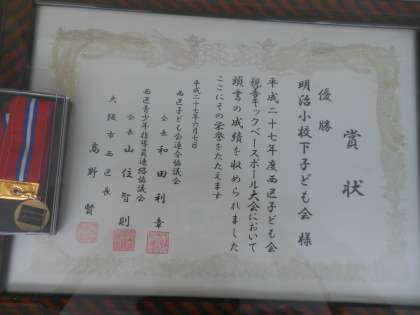 賞状
優勝
明治小校下子ども会 様
平成二十七年度西区子ども会
親善キックベースボール大会において
頭書の成績を収められました
ここにその栄誉をたたえます
平成二十七年六月七日
西区子ども会連合協議会
会長 和田利章
西区青少年指導員連絡協議会
会長 山住智則
大阪市西区長
高野賢